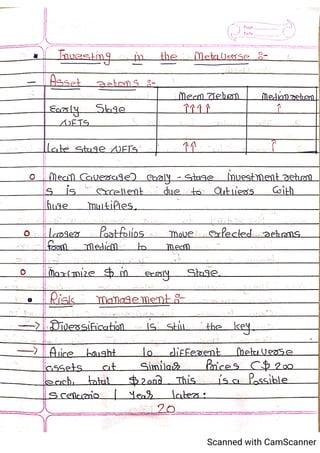 Page
Date
Investing in the Metaverse :-
Asset returns :-
Mean Return Median return
Early Stage ↑↑↑↑ ↑
NFTS
Late stage NFTs ↑↑ ↑
Mean (average) early - stage investment return
s is excellent due to outliers with
huge multiples.
Larger Portfolios move expected returns
from median to mean
Maximize $ in early Stage.
Risk management :-
Diversification is still the key.
Alice bought 10 different Metaverse
assets at similar Prices ($ 200
each, total This is a Possible
scenario 1 year later :
20
Scanned with CamScanner